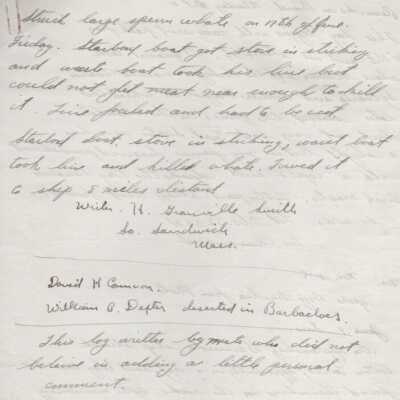 Struck large sperm whale on 17th of June.
Friday. Starboard boat got stove in striking
and waist boat took his line but
could not get meat near enough to kill
it. Line fouled and had to be cut.
Starboard boat stove in striking, waist boat
took line and killed whale. Towed it
to ship 8 miles distant
Writer. H. Granville Smith
So. Sandwich
Mass.
David H Cannon.
William C. Dexter deserted in Barbadoes.
This log written by mate who did not
believe in adding a little personal
comment.